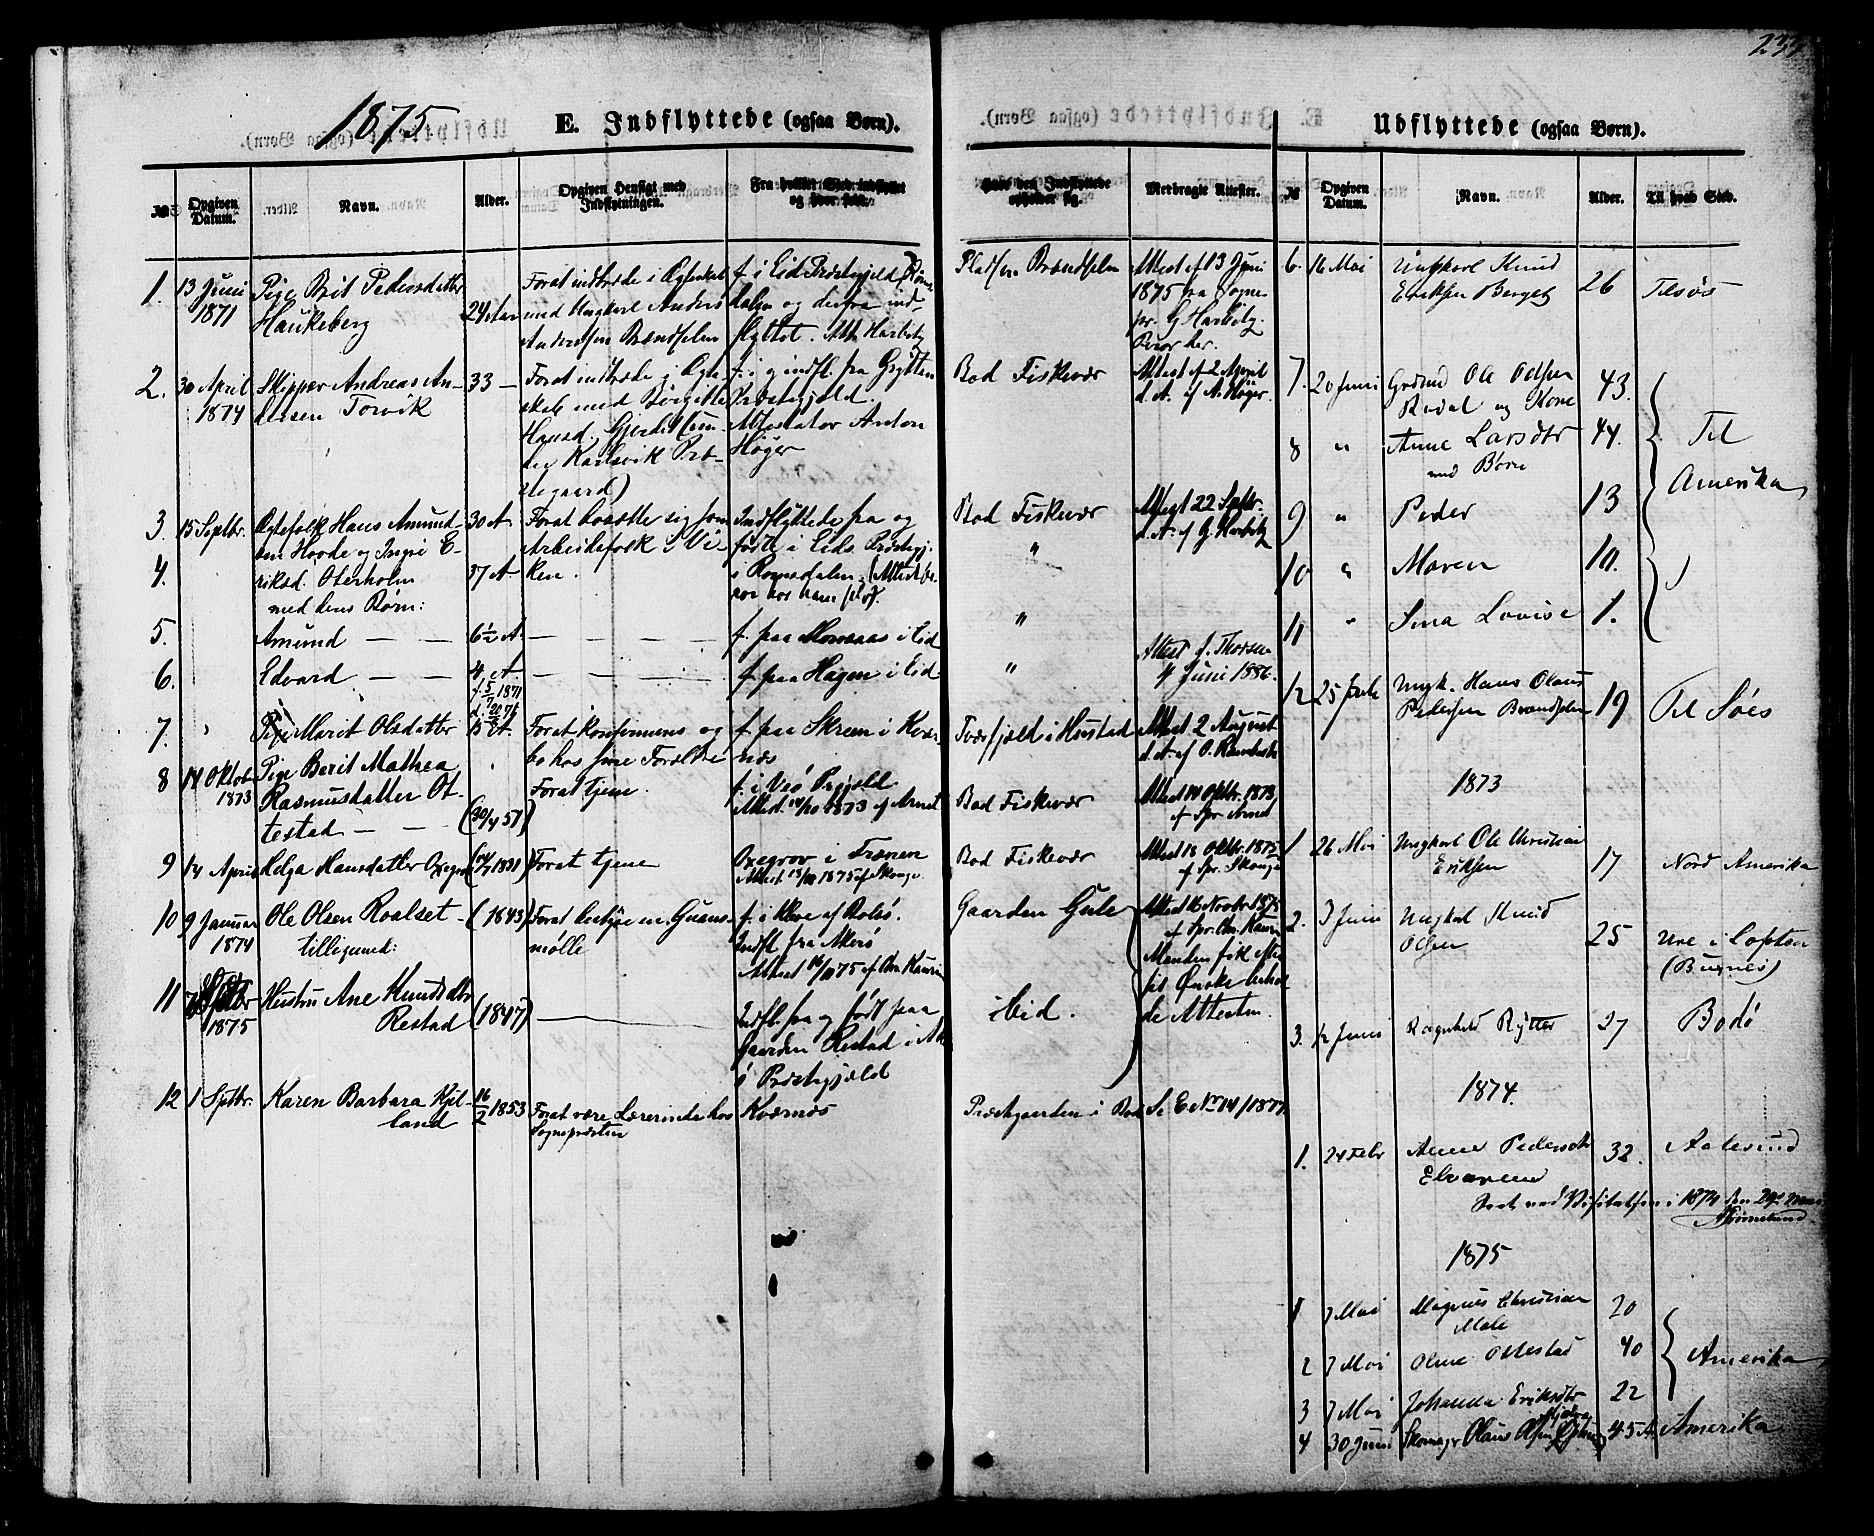 233
1875
E. Indflyttede (ogsaa Børn).
№
Opgiven Datum.
Navn.
Alder.
Opgiven Hensigt med Indflytningen.
Fra hvilket Sted indflyttet og hvor født.
Hvor den Indflyttede opholder sig.
Medbragte Attester.
1. 13 Juni 1871
Pige Brit Pedersdatter
Haukeberg
24 Aar
Forat indtræde i Egteskab
med Ungkarl Anders
Andersen Brændselen
f. i Eid Præstegjeld
dalen og derfra ind-
flyttet. Att. Harbitz
Pladsen Brændselen
Attest af 13 Juni
1875 fra Sogne-
pr. G Harbitz.
2. 30 April 1874
Skipper Andreas An-
dersen Torvik
33 –
Forat indtræde i Egte-
skab med Birgitte
Hansd. Gjerde
Karlsvik Præ-
stegaard)
f. i og indfl. fra Grytten
Præstegjeld.
Attestator Anton
Høyer
Bod Fiskevær
Attest af 2 April
d. A. af A. Høyer
3. 15 Septbr.
Egtefolk Hans Amund-
sen Hovde og Ingri E-
4.
riksd. Oterholm
med deres Børn:
30 A
37 A
Forat bosætte sig som
Arbeidsfolk i Vi-
ken.
Indflyttede fra og
født i Eids Præstegj.
i Romsdalen.
Bod Fiskevær
"
Attest 22 Septbr.
d. A. af G. Harbitz
5.
Amund — —
6½ A.
f. paa Monsaas i Eid
"
6.
Edvard — —
4 A
f. 5/7 1871
f. paa Hagen i Eid
"
Attest f. Thorsen
4 Juni 1886.
7. "
Pige Marit Olsdatter
15 A.
Forat konfirmeres og
bo hos sine Forældre
f. paa Skreen i Kvær-
næs
Tverfjeld i Hustad
Attest 2 August
d. A. af O.
8 14 Oktob. 1873
Pige Berit Mathea
Rasmusdatter Ot-
testad — —
(30/4 57)
Forat tjene.
f. i Veø Prgjeld
Attest. 14/10 1873 af Arnet
Bod Fiskevær
Attest 14 Oktbr. 1873
af Spr Arnet
9 14 April
Helga Hansdatter
Forat tjene
i Frænen
Attest. 18/10 1875 af Skonge
Bod Fiskevær
Attest 18 Oktbr. 1875
af Spr. Skonge
10 9 Januar 1874
Ole Olsen Roalset
tilligemed:
(1843)
Forat bestyre en Guano-
mølle
f. i
Indfl. fra Akerø
Attest 16/11 75 af Chr Kaurin
Gaarden Gule
Attest 16 Novbr 1875
af Spr. Chr. Kaurin
Manden fik efter
sit Ønske
de Attesten.
11
1875
Hustru Ane Knudsdtr
Restad
(1847)
Indfl. fra og født paa
Gaarden Restad i Ak-
ø Præstegjæld
ibid.
12 1 Sptbr.
Karen Barbara Kjel-
land
16/2 1853
Forat være Lærerinde hos
Sognepræsten
Kværnæs
Præstegaarden i Bod
Se E No 14/1877.
Udflyttede (ogsaa Børn).
№
Opgiven Datum.
Navn.
Alder.
Til hvad Sted.
6. 16 Mai
Ungkarl Knud
Eriksen Berget
26
7. 20 Juni
Ole Olsen
og Kone
43.
8 "
Anne Larsdtr
med Børn
44.
Til
Amerika
9 "
Peder
13
10 "
Maren
10.
11 "
Sina Lovise
1.
12 25 Juli
Ungk. Hans Olaus
Pedersen Brændselen
19
1873
1 26 Mai
Ungkarl Ole Christian
Eriksen
17
Nord Amerika
2. 3 Juni
Ungkarl Knud
Olsen
25
Ure i Lofoten
(Buxnes)
3. 12 Juni
Ragnhild Rytter
27
Bodø
1874.
1. 24 Febr
Anne Pedersdtr
32.
Aalesund
1874
1875
1 7 Mai
Magnus Christian
Male
20
2 7 Mai
Oline Ottestad
40
Amerika
3 7 Mai
Johanna Eriksdtr
22
4 30 Juni
Skomager Olaus Olsen
45 A
Amerika